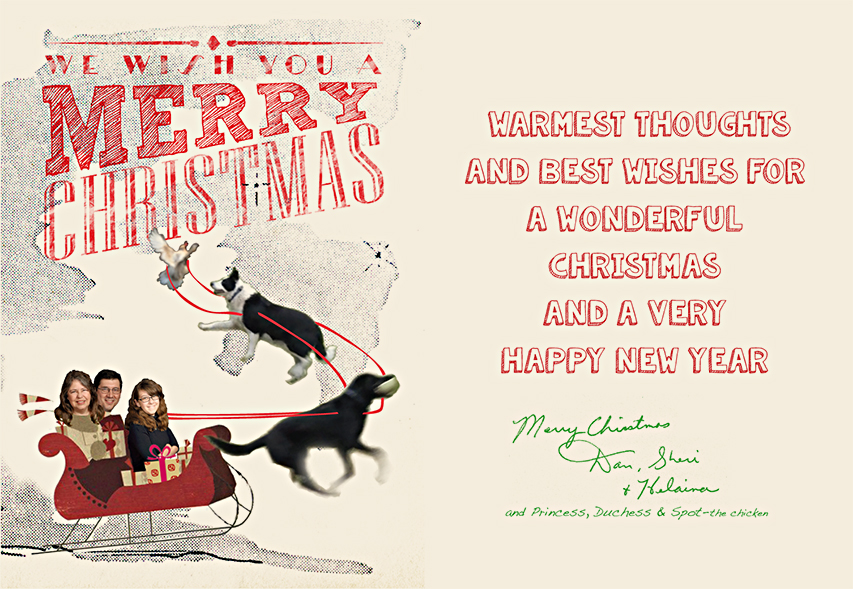 WE WISH YOU A
MERRY
CHRISTMAS
WARMEST THOUGHTS
AND BEST WISHES FOR
A WONDERFUL
CHRISTMAS
AND A VERY
HAPPY NEW YEAR
Merry Christmas
Dan, Sheri
+ Kelaina
and Princess, Duchess & Spot-the chicken